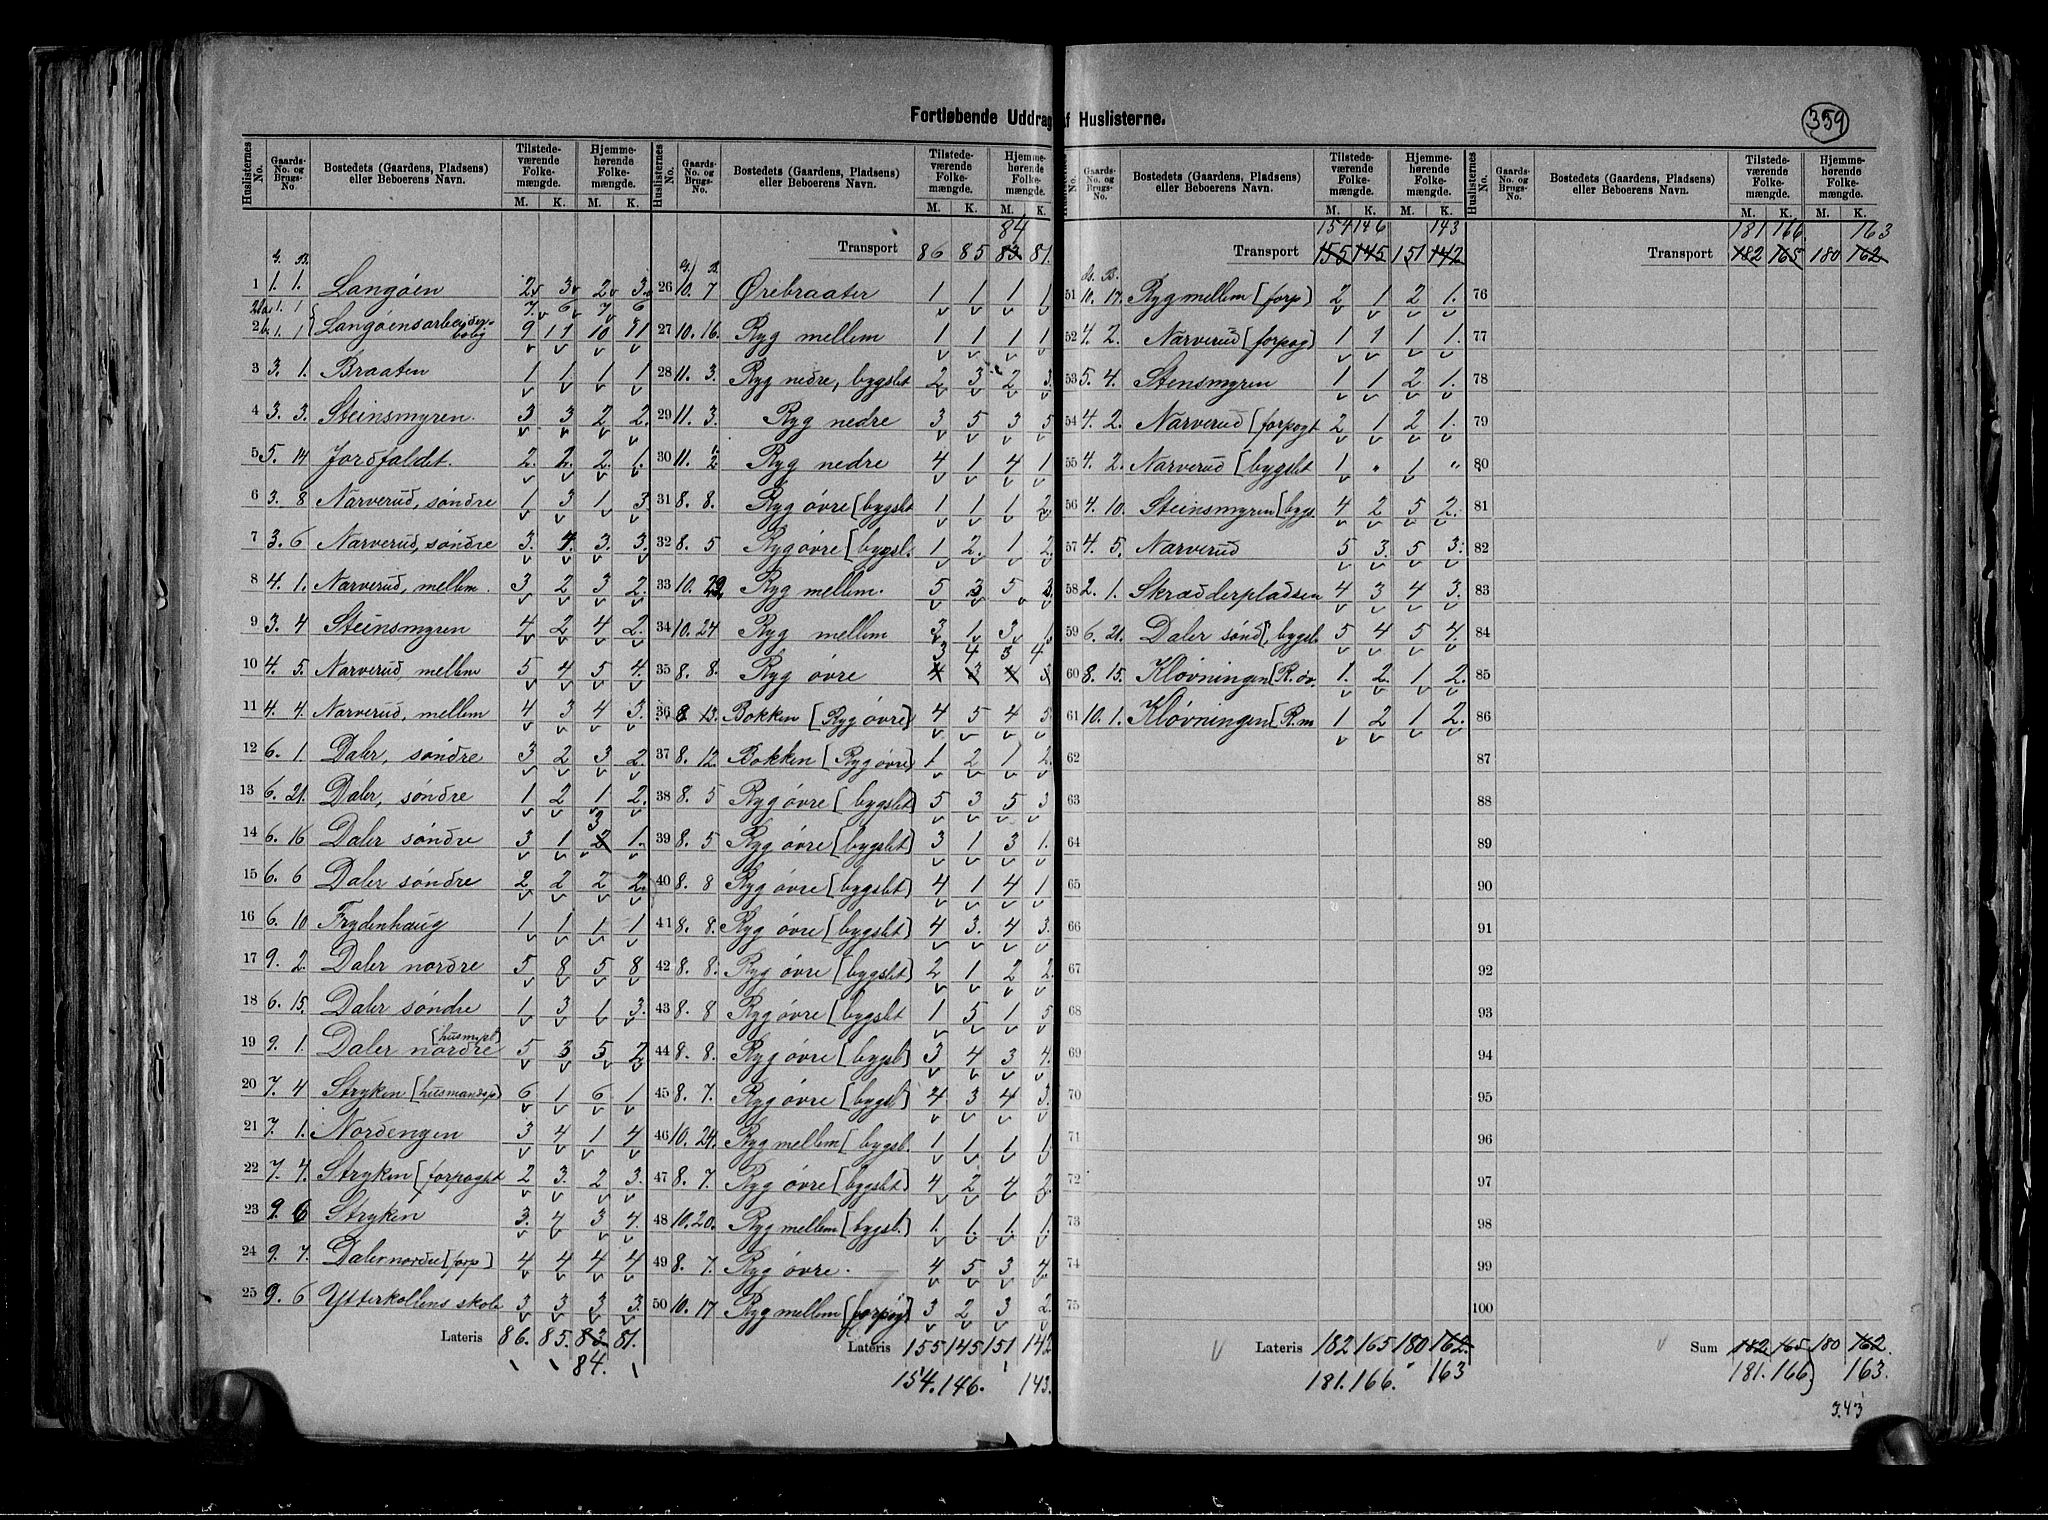 Fortløbende Uddrag af Huslisterne.
359
Huslisternes No. Gaards-No. og Brugs-No. Bostedets (Gaardens, Pladsens) eller Beboerens Navn. Tilstedeværende Folkemængde. M. K. Hjemmehørende Folkemængde. M. K.
G. B.
1 1. 1. Langøen 2 3 2 3
2a 1. 1 7. 6 7 6
2b 1. 1 Langøensarbeiderbolig 9 11 10 11
3 3. 1. Braaten 1 1 1 1
4 3. 3. Steinsmyren. 3 3 2 2.
5 5. 14 Jordfaldet. 2. 2. 2. 1.
6 3. 8 Narverud, søndre 1 3 1 3.
7 3. 6 Narverud, søndre 3. 4. 3. 3.
8 4. 1. Narverud, mellem. 3 2 3 2.
9 3. 4 Steinsmyren 4 2 4 2.
10 4. 5. Narverud, mellem 5 4 5 4.
11 4. 4 Narverud, mellem 4 3 4 3.
12 6. 1 Daler, søndre 3 2 3 2.
13 6. 21. Daler, søndre 1 2 1 2.
14 6. 16 Daler søndre 3 1 2 3 1.
15 6. 6 Daler søndre 2 2 2 2.
16 6. 10 Frydenhaug 1 1 1 1
17 9. 2. Daler nordre 5 8 5 8
18 6. 15. Daler søndre 1 3 1 3.
19 9. 1. Daler nordre [husmpl] 5 3 5 2
20 7. 4 Stryken [husmandsp) 6 1 6 1
21 7. 1. Nordengen 3 4 1 4
22 7. 4. Stryken [forpagtet 2 3. 2 3.
23 9. 6 Stryken 3. 4 3 4.
24 9. 7. Daler nordre [forp] 4 4 4 4
25 9. 6 Ytterkollens skole 3 3 3 3.
Lateris 86. 85. 83 81.
84.
Huslisternes No. Gaards-No. og Brugs-No. Bostedets (Gaardens, Pladsens) eller Beboerens Navn. Tilstedeværende Folkemængde. M. K. Hjemmehørende Folkemængde. M. K.
84
Transport 86 85 83 81.
G. B.
26 10. 7 Ørebraaten 1 1 1 1
27 10. 16. Ryg mellem 1 1 1 1
28 11. 3. Ryg nedre, bygslet 2 3 2 3.
29 11. 3. Ryg nedre 3 5 3 5
30 11. 2. Ryg nedre 4 1 4 1
31 8. 8. Ryg øvre [bygslet 1 1 1 2
32 8. 5 Ryg øvre [bygsl. 1 2. 1 2.
33 10. 29. Ryg mellem. 5 3 5 3.
34 10. 24 Ryg mellem 3 1 3 1
3 4 3 4
35 8. 8. Ryg øvre 4 3 4 3
36 8. 13. Bokken [Ryg øvre) 4 5 4 5
37 8. 12. Bokken [Ryg øvre) 1 2 1 2.
38 8. 5 Ryg øvre [bygslet] 5 3 5 3
39 8. 5 Ryg øvre [bygslet] 3 1 3 1.
40 8. 8 Ryg øvre [bygslet] 4 1 4 1
41 8. 8. Ryg øvre [bygslet) 4 3. 4 3.
42 8. 8. Ryg øvre [bygslet] 2 1 2 2.
43 8. 8 Ryg øvre [bygslet 1 5 1 5
44 8. 8. Ryg øvre [bygsl] 3 4 3 4.
45 8. 7. Ryg øvre [bygsl] 4 3 4 3.
46 10. 24. Ryg mellem [bygsl. 1 1 1 1
47 8. 7. Ryg øvre [bygslet] 4 2 4 2.
48 10. 20. Ryg mellem [bygsl.] 1. 1. 1. 1.
49 8. 7. Ryg øvre. 4 5 3 4
50 10. 17 Ryg mellem [forpag 3 2 3 2.
Lateris 155 145 151 142
154. 146. 143.
Huslisternes No. Gaards-No. og Brugs-No. Bostedets (Gaardens, Pladsens) eller Beboerens Navn. Tilstedeværende Folkemængde. M. K. Hjemmehørende Folkemængde. M. K.
154 146 143
Transport 155 145 151 142
G. B.
51 10. 17. Ryg mellem [forp) 2 1 2 1.
52 4. 2. Narverud [forpag) 1 1 1 1.
53 5. 4. Stensmyren 1 1 2 1.
54 4. 2. Narverud [forpagt 2 1 2 1.
55 4. 2. Narverud [bygslet 1 " 1 "
56 4. 10. Steinsmyren [bygs. 4 2 5 2.
57 4. 5. Narverud 5 3. 5 3.
58 2. 1. Skrædderpladsen 4 3 4 3.
59 6. 21. Daler sønd. [bygsl. 5 4 5 4.
60 8. 15. Kløvningen [R. øv. 1. 2. 1 2.
61 10. 1. Kløvningen [R. m 1 2 1 2.
62
63
64
65
66
67
68
69
70
71
72
73
74
75
Lateris 182 165 180 162
181. 166. 163
Huslisternes No. Gaards-No. og Brugs-No. Bostedets (Gaardens, Pladsens) eller Beboerens Navn. Tilstedeværende Folkemængde. M. K. Hjemmehørende Folkemængde. M. K.
181 166 163
Transport 182 165 180 162
76
77
78
79
80
81
82
83
84
85
86
87
88
89
90
91
92
93
94
95
96
97
98
99
100
Sum 182 165 180 162.
181. 166 163.
343